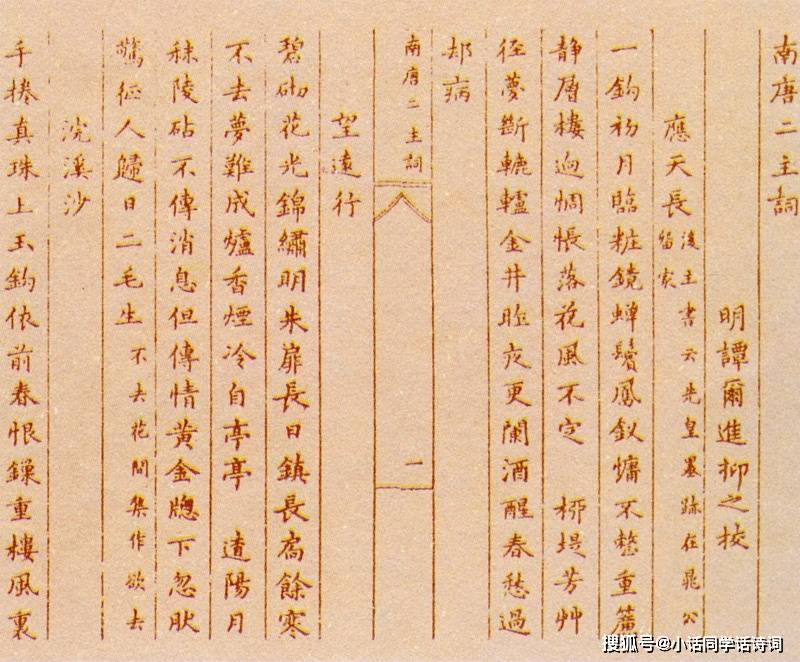 南唐二主詞
明譚爾進抑之校
應天長 後主書云先皇墨跡在晁公留家
一鈎初月臨粧鏡蟬鬢鳳釵慵不整重簾
静層樓逈惆悵落花風不定 柳堤芳艸
徑夢斷轆轤金井昨夜更闌酒醒春愁過
却病
南唐二主詞 一
望遠行
碧砌花光錦繡明朱扉長日鎮長扃餘寒
不去夢難成爐香煙冷自亭亭 遼陽月
秣陵砧不傳消息但傳情黃金牕下忽肰
驚征人歸日二毛生 不去花間集作欲去
浣溪沙
手捲真珠上玉鈎依前春恨鏁重樓風裏
搜狐号@小话同学话诗词